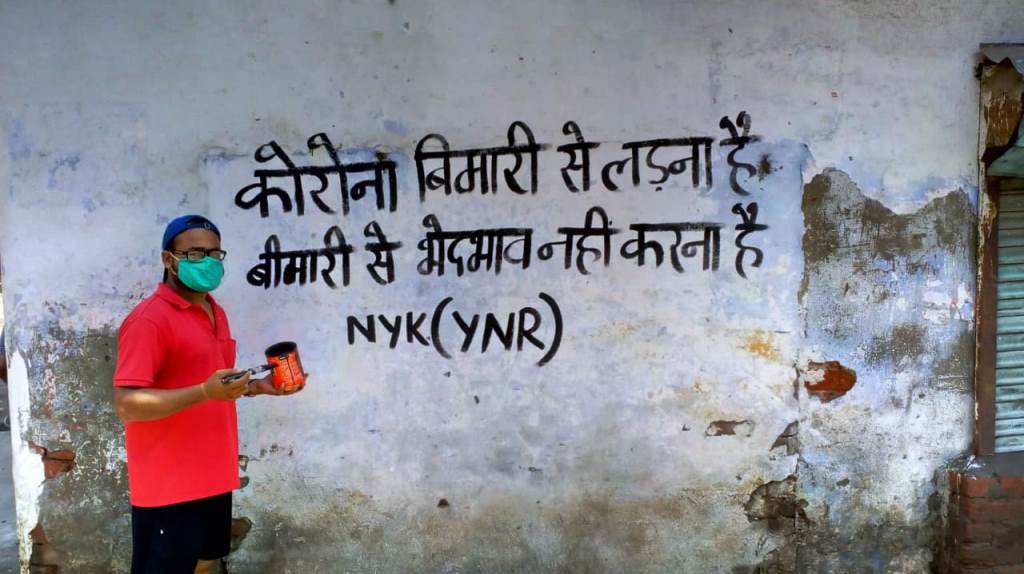 कोरोना बिमारी से लड़ना है
बीमारी से भेदभाव नहीं करना है
NYK(YNR)